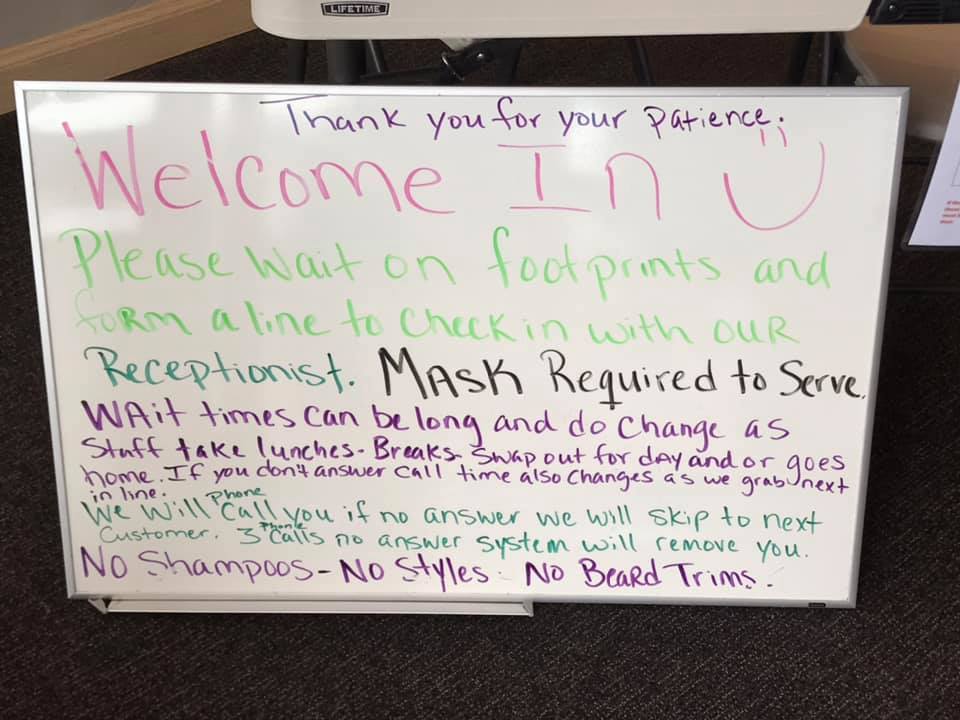 LIFETIME
Thank you for your patience.
Welcome In
Please wait on footprints and
form a line to check in with our
Receptionist. Mask Required to Serve.
Wait times can be long and do change as
Staff take lunches - Breaks - Swap out for day and or goes
home. If you don't answer call time also changes as we grab next
in line.
We will Phone call you if no answer we will skip to next
Customer. 3 Phone calls no answer system will remove you.
No Shampoos - No Styles - No Beard Trims.